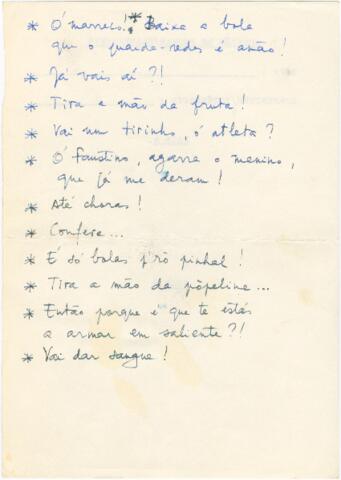 * Ó marreco! * Baixa a bola
que o guarda-redes é anão!
* Já vais aí ?!
* Tira a mão da fruta!
* Vai um tirinho, ó atleta?
* Ó Faustino, agarra o menino,
que já me deram!
* Até choras!
* Confere...
* É só bolas p'rò pinhal!
* Tira a mão da pòpeline...
* Então porque é que te estás
a armar em saliente?!
* Vai dar sangue!